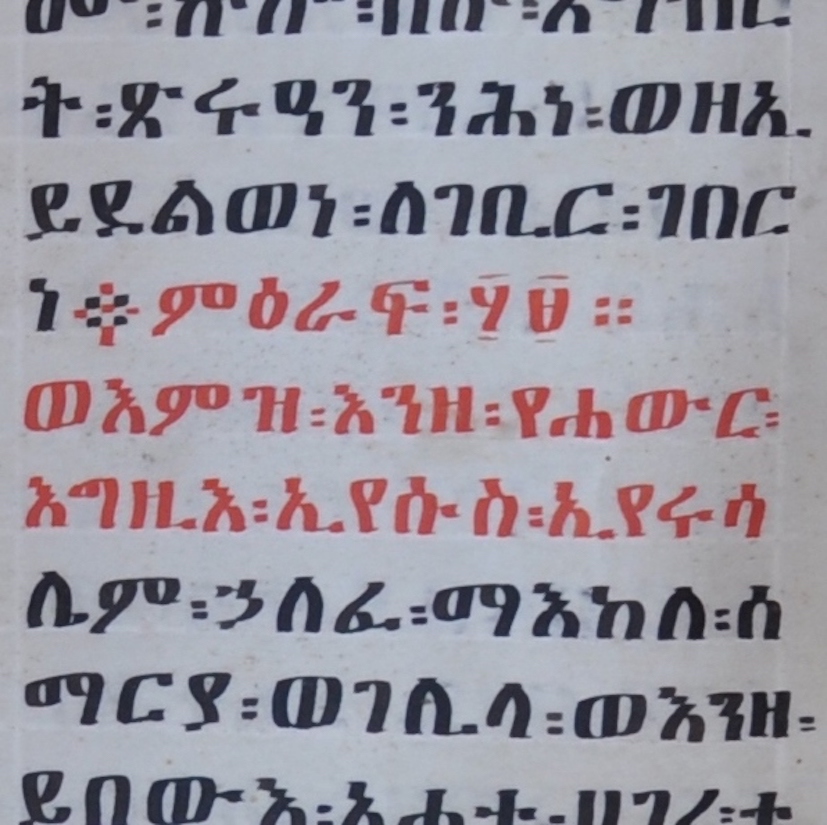 ት፡ጽሩዓን፡ንሕነ፡ወዘኢ
ይደልወነ፡ለገቢር፡ገበር
ነ፨ምዕራፍ፡፶፱፡፡
ወእምዝ፡እንዘ፡የሐውር፡
እግዚእ፡ኢየሱስ፡ኢየሩሳ
ሌም፡ኃለፈ፡ማእከለ፡ሰ
ማርያ፡ወገሊላ፡ወእንዘ፡
ይበውእ፡አሐተ፡ሀገረ፡ተ